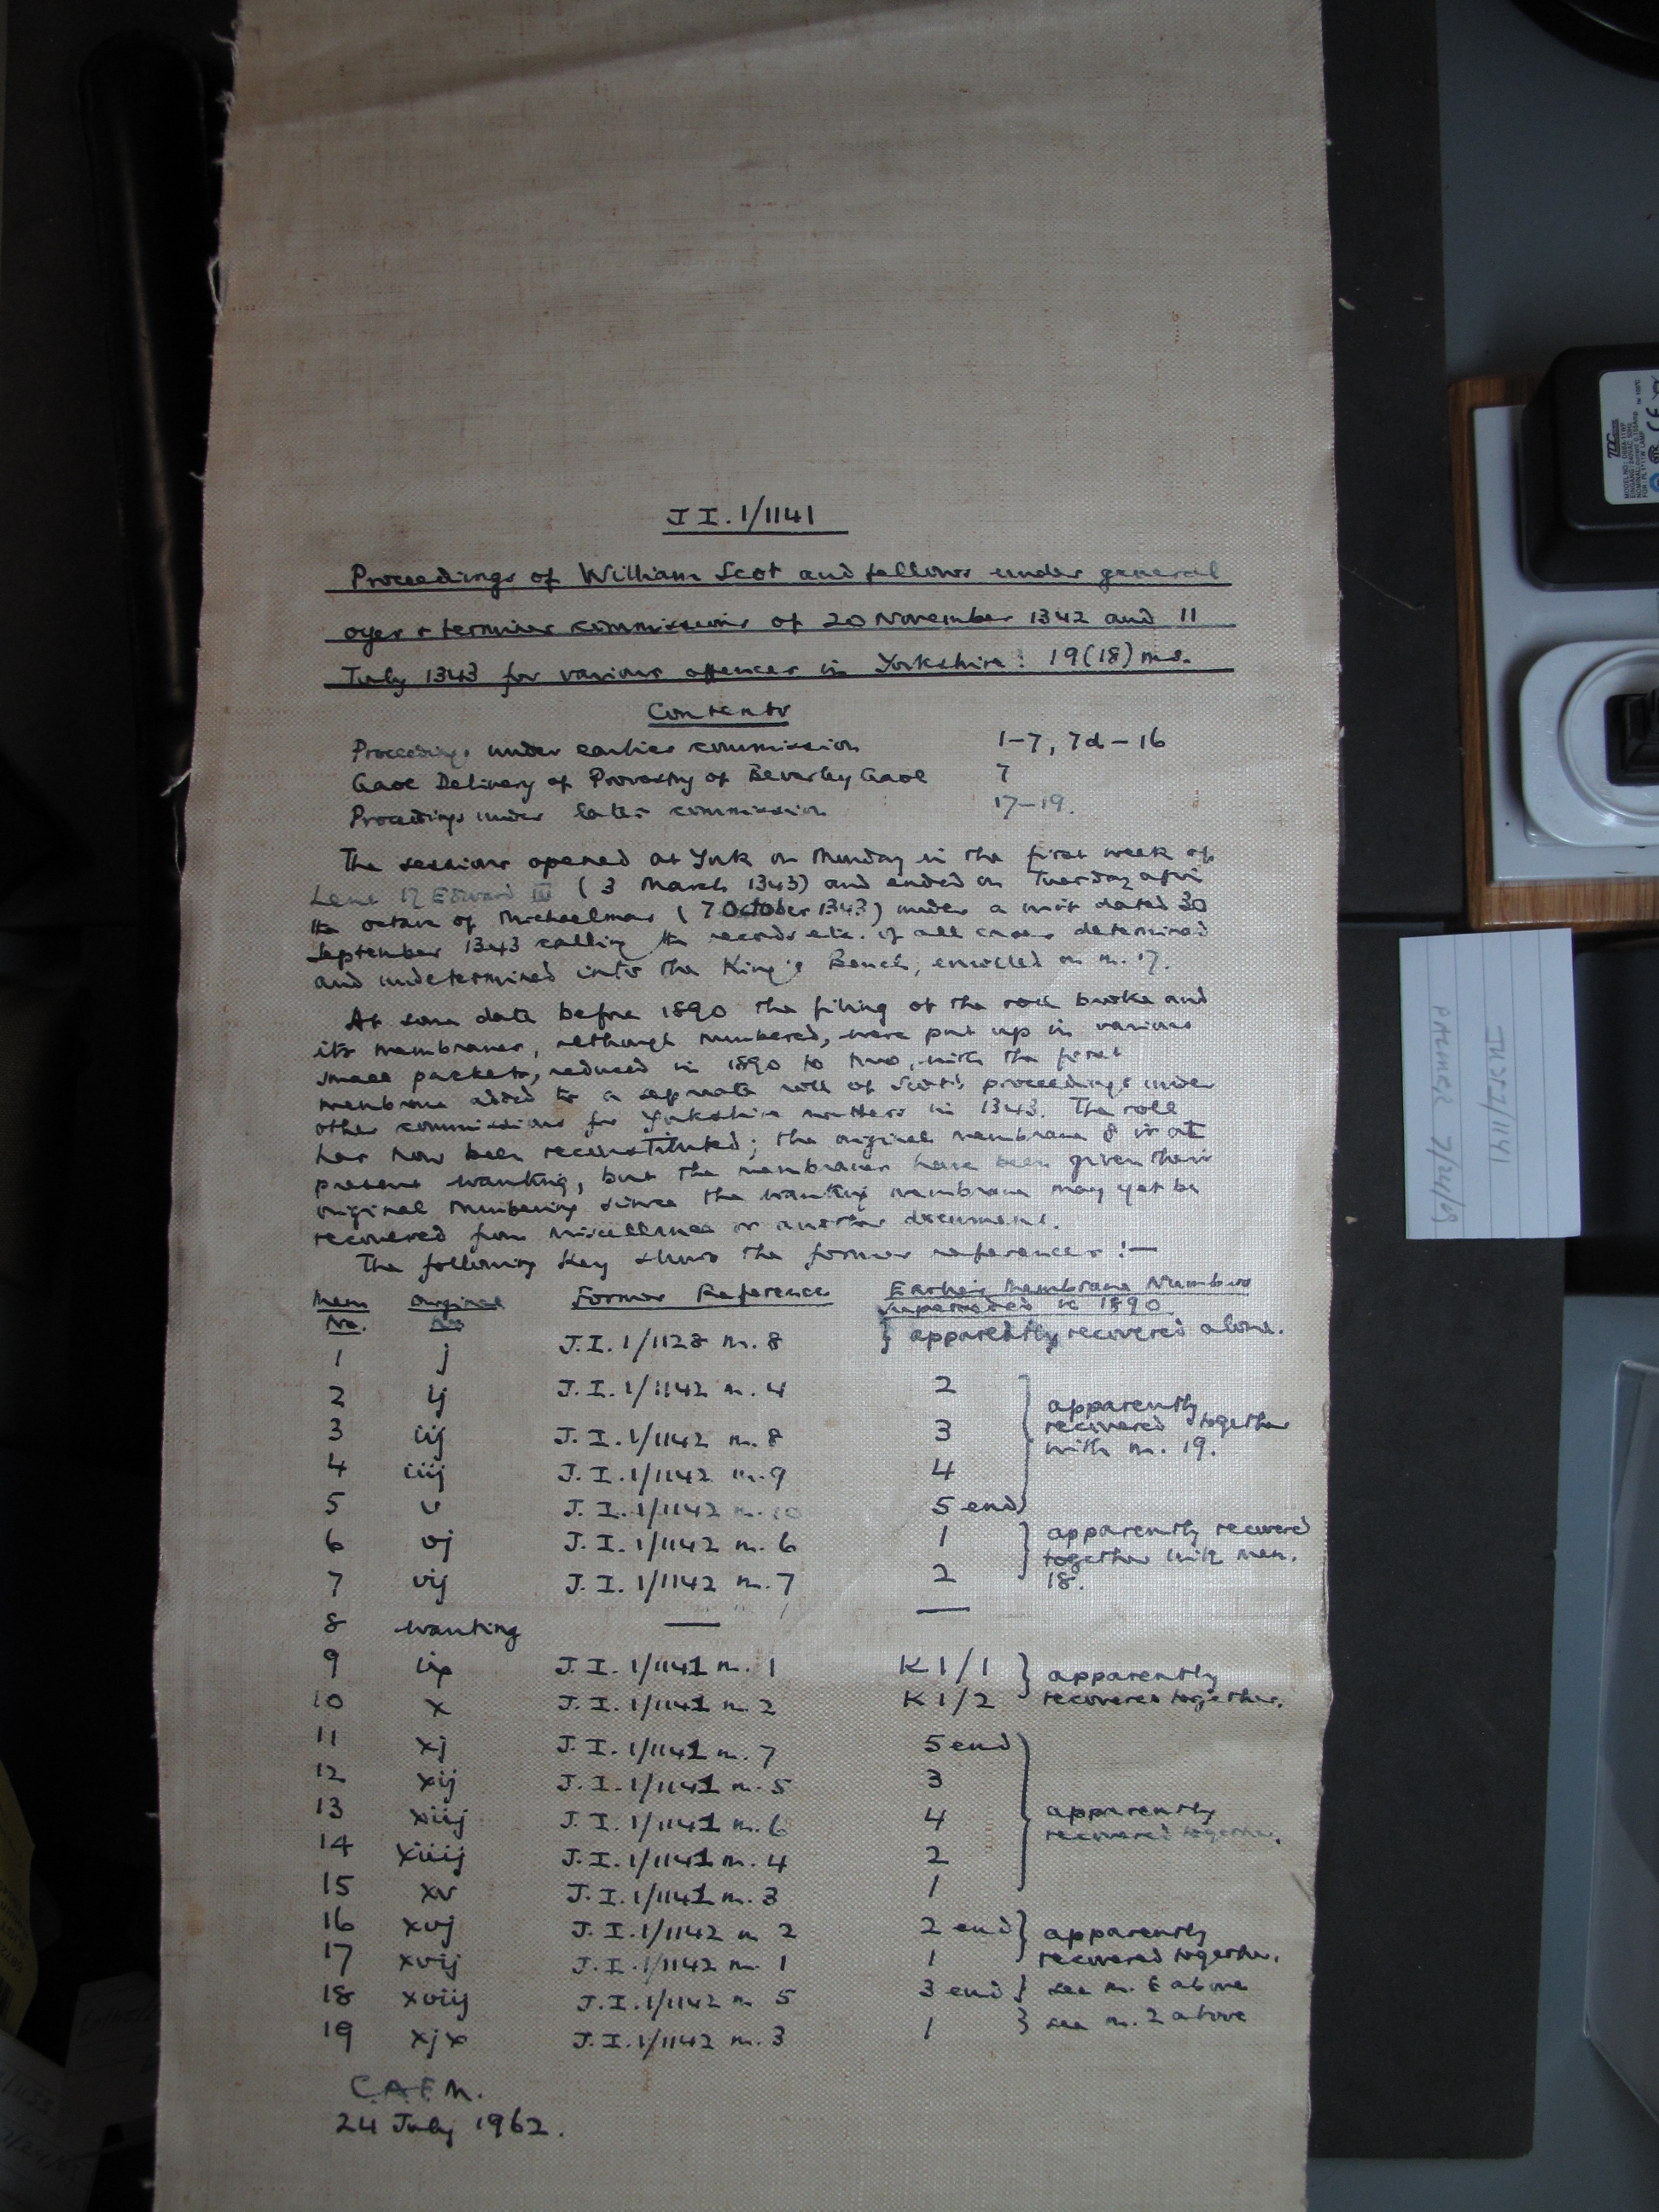 J I. 1/1141
Proceedings of William Scot and fellows under general
oyer & terminer commissions of 20 November 1342 and 11
July 1343 for various offences in Yorkshire: 19(18) ms.
Contents
Proceedings under earlier commission 1-7, 7d-16
Gaol Delivery of Provostry of Beverley Gaol 7
Proceedings under later commission 17-19.
The sessions opened at York on Monday in the first week of
Lent 17 Edward III (3 March 1343) and ended on Tuesday after
the octave of Michaelmas (7 October 1343) under a writ dated 30
September 1343 calling the records etc. of all cases determined
and undetermined into the King's Bench, enrolled on m. 17.
At some date before 1890 the filing of the roll broke and
its membranes, although numbered, were put up in various
small packets, reduced in 1890 to two, with the first
membrane added to a separate roll of Scot's proceedings under
other commissions for Yorkshire matters in 1343. The roll
has now been reconstituted; the original membrane 8 is at
present wanting, but the membranes have been given their
original numbering since the wanting membrane may yet be
recovered from miscellanea or another document.
The following key shows the former references:—
Mem. No. Original No. Former Reference Earlier Membrane Numbers
superseded in 1890
1 j J.I. 1/1128 m. 8 } apparently recovered alone.
2 ij J.I. 1/1142 m. 4 2
3 iij J.I. 1/1142 m. 8 3 } apparently recovered together with m. 19.
4 iiij J.I. 1/1142 m. 9 4
5 v J.I. 1/1142 m. 10 5 end
6 vj J.I. 1/1142 m. 6 1 } apparently recovered together with mem. 18.
7 vij J.I. 1/1142 m. 7 2
8 wanting — —
9 ix J.I. 1/1141 m. 1 K 1/1 } apparently
10 x J.I. 1/1141 m. 2 K 1/2 recovered together.
11 xj J.I. 1/1141 m. 7 5 end
12 xij J.I. 1/1141 m. 5 3
13 xiij J.I. 1/1141 m. 6 4 } apparently recovered together.
14 xiiij J.I. 1/1141 m. 4 2
15 xv J.I. 1/1141 m. 3 1
16 xvj J.I. 1/1142 m 2 2 end } apparently
17 xvij J.I. 1/1142 m. 1 1 recovered together.
18 xviij J.I. 1/1142 m 5 3 end } see m. 6 above
19 xjx J.I. 1/1142 m. 3 1 } see m. 2 above
C.A.F.M.
24 July 1962.
JUST 1/1141
7/24/09